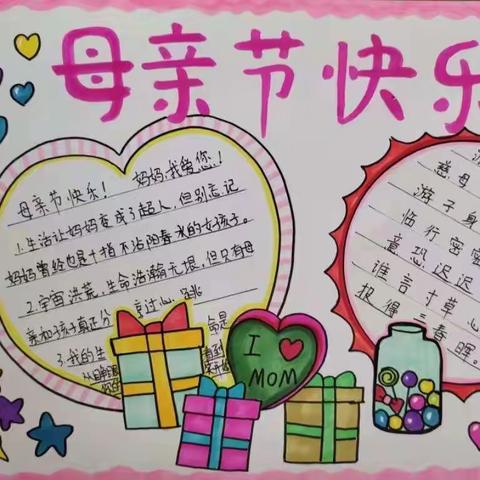 母亲节快乐
母亲节快乐! 妈妈,我爱您!
1.生活让妈妈变成了超人,但别忘记
妈妈曾经也是十指不沾阳春水的女孩子。
2.宇宙洪荒,生命浩瀚无垠,但只有母
亲和孩子真正分享过心跳
3.我的生命是
I ♥
MOM
慈母
游子身
临行密密
意恐迟迟
谁言寸草心
报得三春晖。